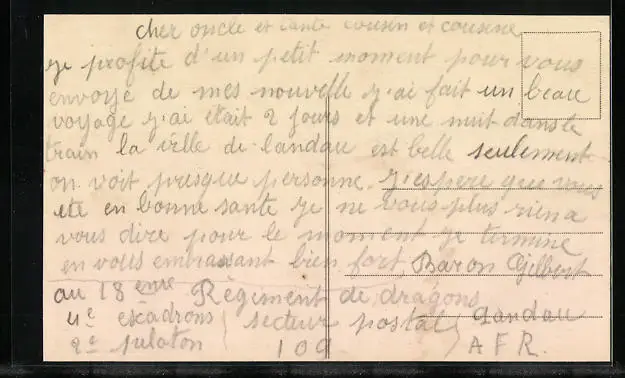 cher oncle et tante cousin et cousine
je profite d'un petit moment pour vous
envoyé de mes nouvelle j'ai fait un beau
voyage j'ai était 2 jours et une nuit dans le
train la ville de landau est belle seulement
on voit presque personne. j'espere que vous
ete en bonne sante je ne vous plus rien a
vous dire pour le moment je termine
en vous embrassant bien fort. Baron Gilbert
au 18 eme Règiment de dragons
4e escadrons ( secteur postal ) Landau
2e puloton 109 A F R.